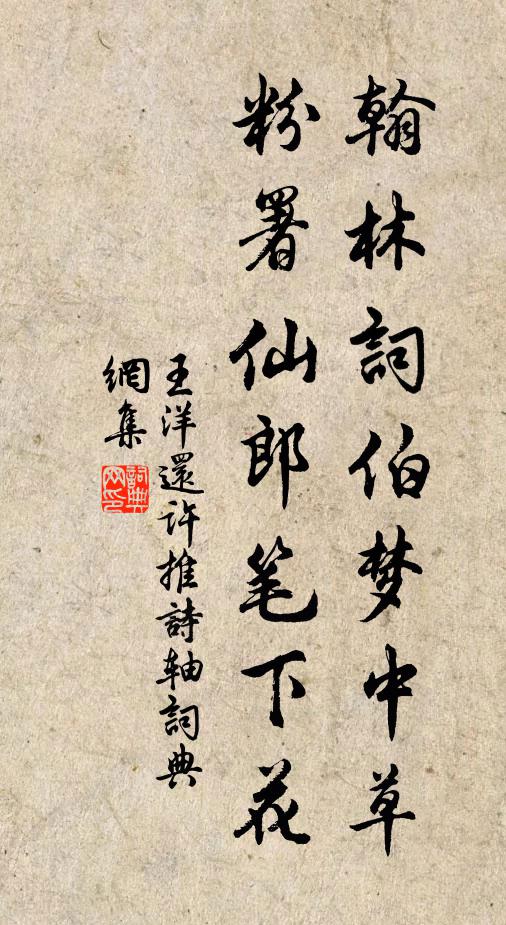 翰林詞伯梦中草
粉署仙郎笔下花
王洋還许推詩轴詞典
網集
詞典
网印